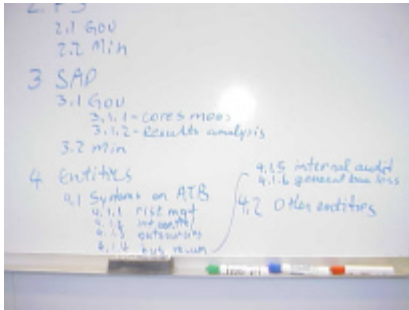 2.1 Gov
2.2 Min
3 SAP
3.1 Gov
3.1.1 - cores
3.1.2 - Results analysis
3.2 Min
4 Entities
4.1 Systems on ATB
4.1.1 risk mgt
4.1.2
4.1.3 outsourcing
4.1.4 bus
4.1.5 internal audit
4.1.6 general bus loss
4.2 Other entities